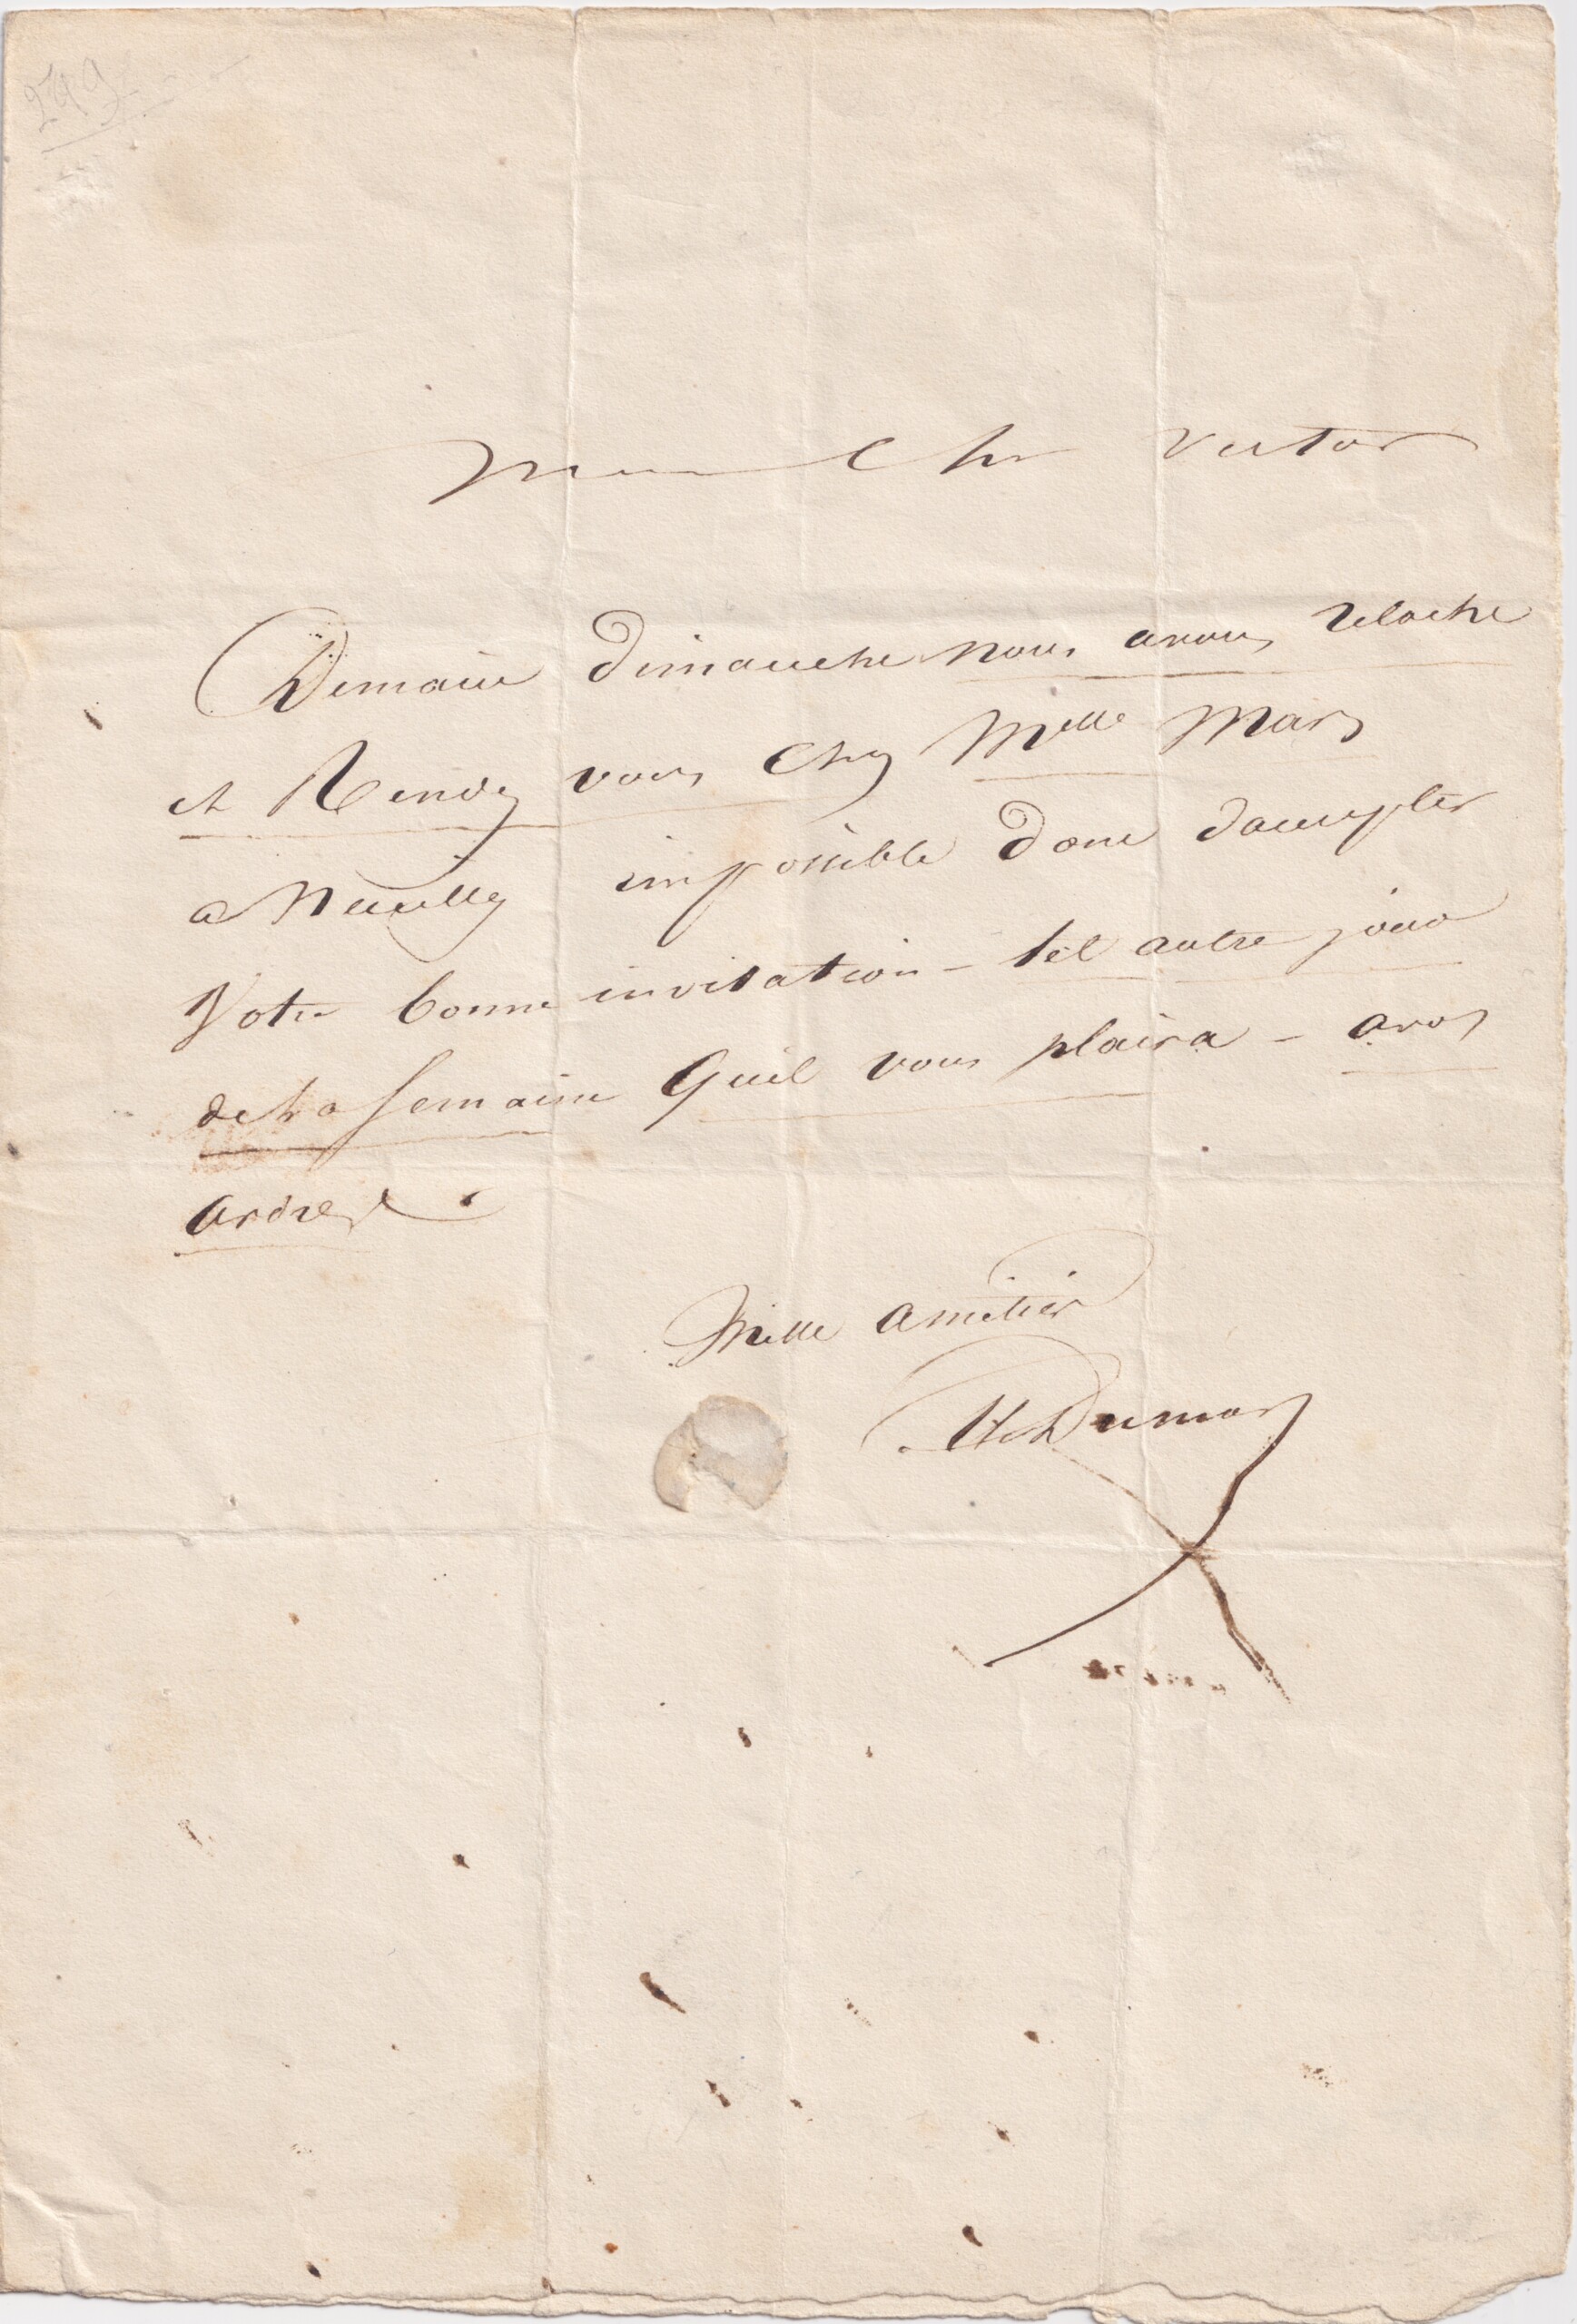 299
Mon Cher Victor
Demain Dimanche nous avons relache
et Rendez vous Chez Melle Mars
a Neuilly impossible donc daccepter
Votre bonne invitation – tel autre jour
de la semaine Quil vous plaira – a vos
ordres
Mille amitiés
Alex Dumas